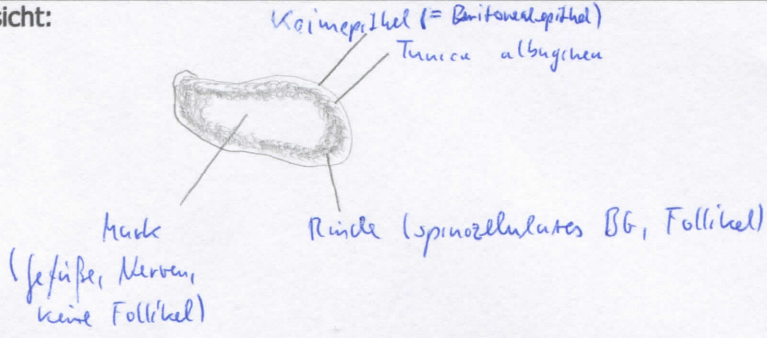 sicht:
Keimepithel (= Peritonealepithel)
Tunica albuginea
Mark
(Gefäße, Nerven,
keine Follikel)
Rinde (spinozelluläres BG, Follikel)